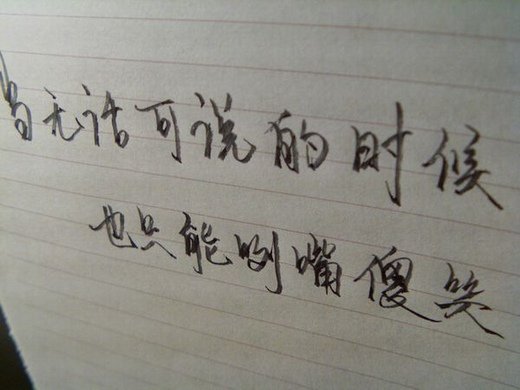 当无话可说的时候
也只能咧嘴傻笑